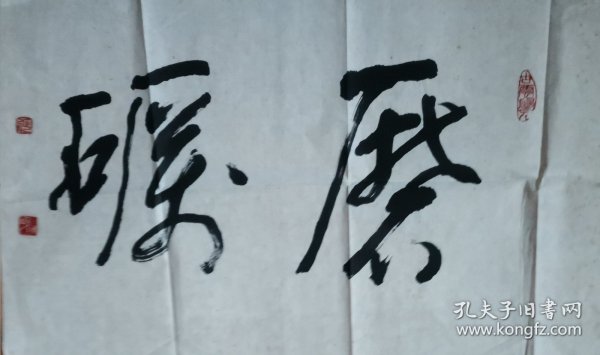 磨礪
孔夫子旧书网
www.kongfz.com